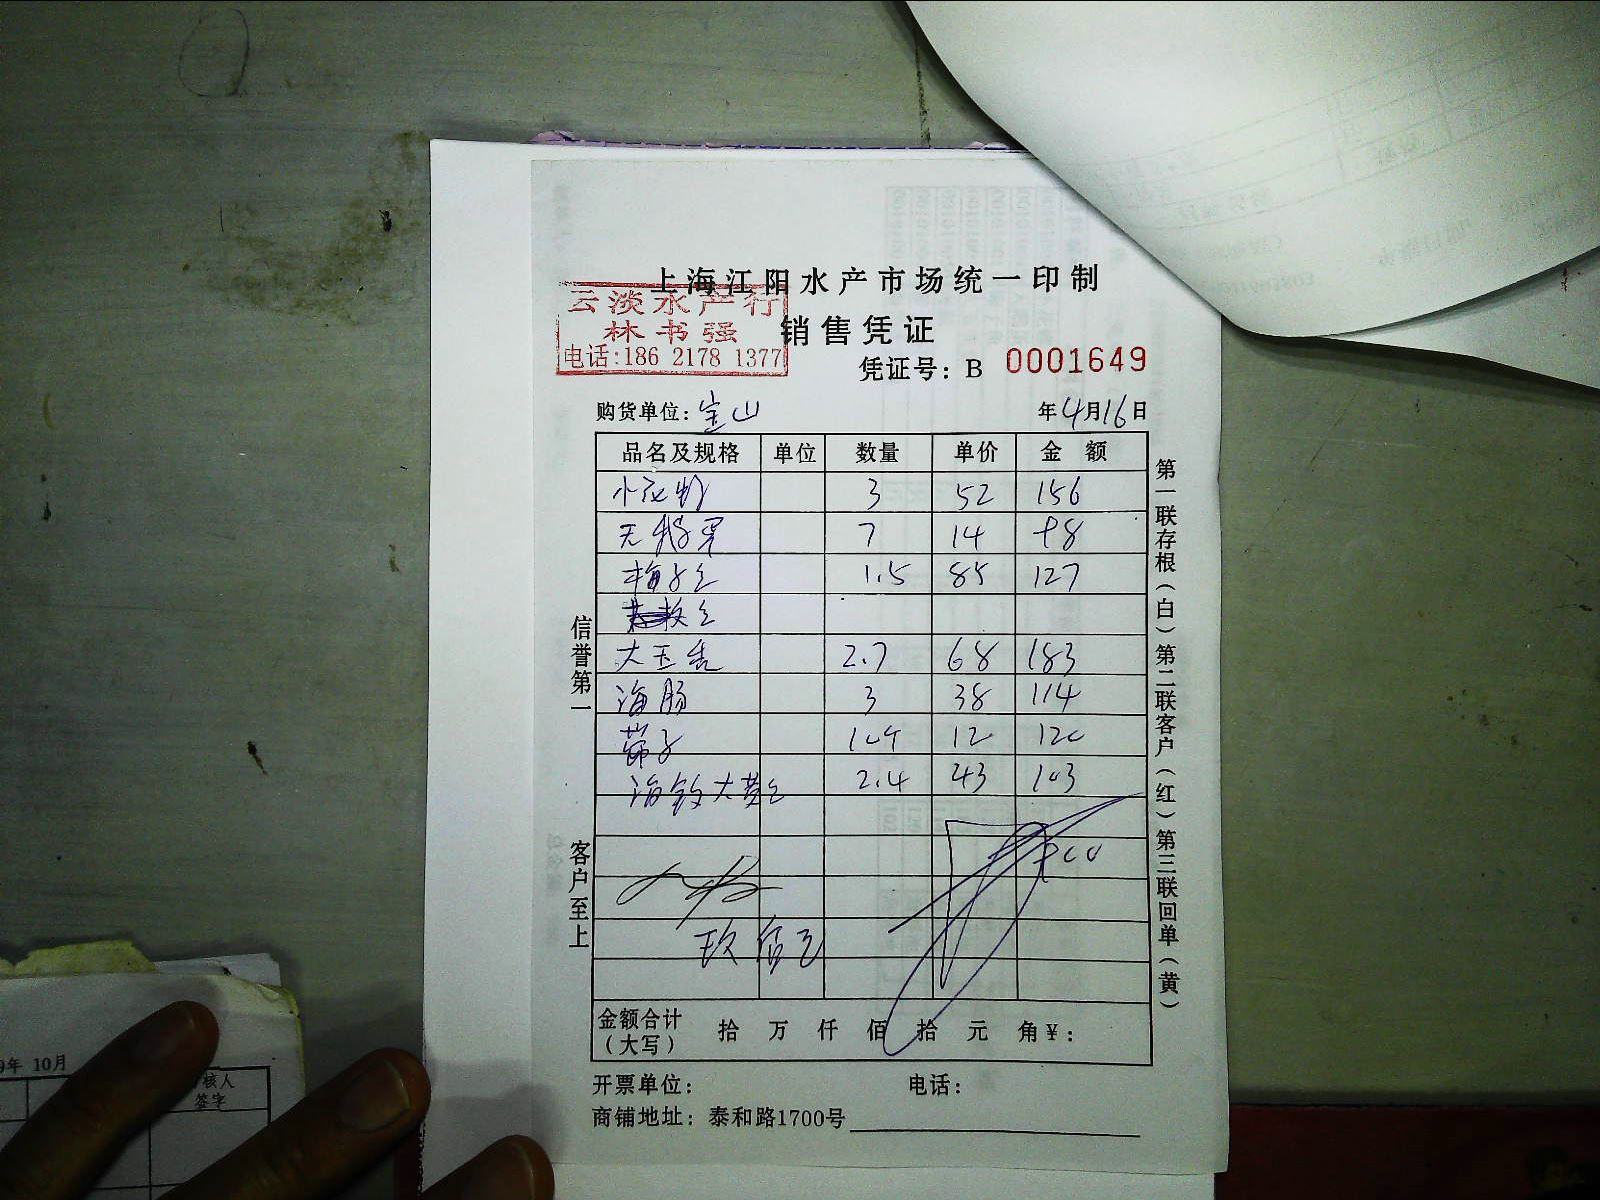 上海江阳水产市场统一印制
云淡水产行
林书强
电话:186 2178 1377
销售凭证
凭证号: B 0001649
购货单位: 宝山 年4月16日
品名及规格 单位 数量 单价 金额
3 52 156
7 14 98
1.5 85 127
大玉秃 2.7 68 183
海肠 3 38 114
12 120
2.4 43 103
玖佰元
金额合计
(大写) 拾 万 仟 佰 拾 元 角 ¥:
开票单位: 电话:
商铺地址: 泰和路1700号
信誉第一
客户至上
第一联存根(白)第二联客户(红)第三联回单(黄)
年 10月
核人
签字